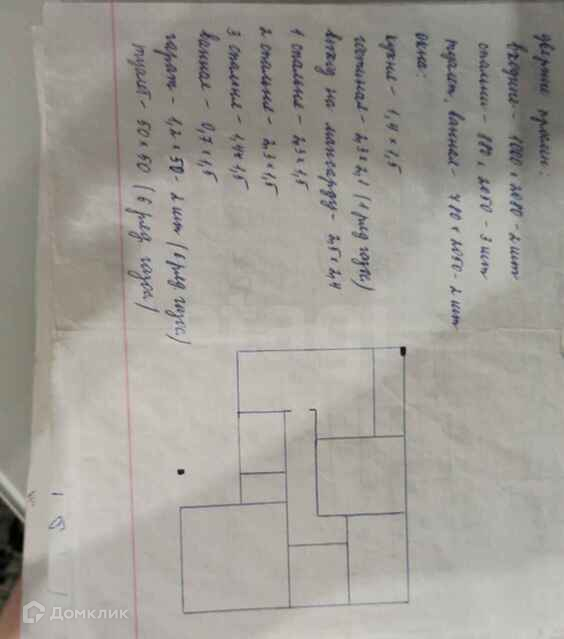 дверные проемы:
входные - 1000 x 2080 - 2 шт
спальни - 880 x 2050 - 3 шт
туалет, ванная - x 2050 - 2 шт
окна:
кухня - 1,4 x 1,5
гостиная - 2,3 x 2,1 (1 ряд газа)
выход на мансарду - 2,5 x 2,4
1 спальня - 2,3 x 1,5
2 спальня - 2,3 x 1,5
3 спальня - 1,4 x 1,5
ванная - 0,7 x 1,5
гараж - 1,2 x 50 - 2 шт (6 ряд газа)
туалет - 50 x 50 (6 ряд газа)
etagi
Домклик